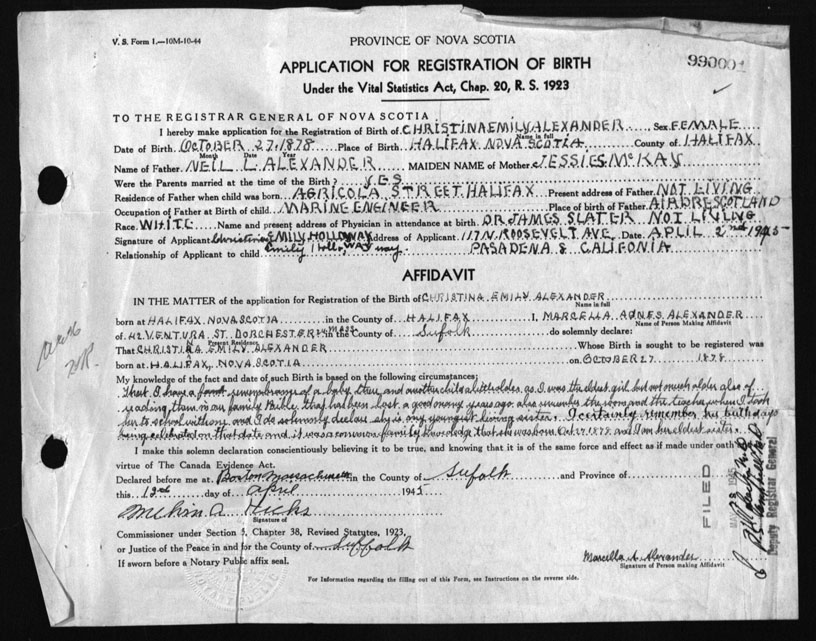 V. S. Form 1.—10M-10-44
PROVINCE OF NOVA SCOTIA
990001
APPLICATION FOR REGISTRATION OF BIRTH
Under the Vital Statistics Act, Chap. 20, R. S. 1923
TO THE REGISTRAR GENERAL OF NOVA SCOTIA
I hereby make application for the Registration of Birth of CHRISTINA EMILY ALEXANDER, Sex FEMALE
Name in full
Date of Birth OCTOBER 27, 1878 Place of Birth HALIFAX NOVA SCOTIA County of HALIFAX
Month Date Year
Name of Father NEIL L. ALEXANDER MAIDEN NAME of Mother JESSIE S. McKAY
Were the Parents married at the time of the Birth? YES
Residence of Father when child was born AGRICOLA STREET HALIFAX Present address of Father NOT LIVING
Occupation of Father at Birth of child MARINE ENGINEER Place of birth of Father AIRDRE SCOTLAND
Race WHITE Name and present address of Physician in attendance at birth DR JAMES SLATER NOT LIVING
Signature of Applicant Christina EMILY HOLLOWAY Address of Applicant 117 N. ROOSEVELT AVE, Date APLIL 2nd 1945
Relationship of Applicant to child Emily PASADENA 8 CALIFONIA
AFFIDAVIT
IN THE MATTER of the application for Registration of the Birth of CHRISTINA EMILY ALEXANDER
Name in full
born at HALIFAX NOVA SCOTIA in the County of HALIFAX I, MARCELLA AGNES ALEXANDER
Name of Person Making Affidavit
of VENTURA ST. DORCHESTER MASS in the County of Suffolk do solemnly declare:
Present Residence
That CHRISTINA EMILY ALEXANDER Whose Birth is sought to be registered was
born at HALIFAX, NOVA SCOTIA on OCTOBER 27 1878
My knowledge of the fact and date of such Birth is based on the following circumstances:
That I have a faint remembrance of a baby then and another child a little older, as I was the eldest girl but not much older also of
reading them in our family Bible that has been lost a good many years ago. also remember the room and the teacher when I took
her to school with me and I do solemnly declare she is my youngest living sister. I certainly remember her birthdays
being celebrated on that date and it was common family knowledge that she was born Oct 27 1878 and I am her eldest sister.
I make this solemn declaration conscientiously believing it to be true, and knowing that it is of the same force and effect as if made under oath by
virtue of The Canada Evidence Act.
Declared before me at Boston Massachusetts in the County of Suffolk and Province of
this 12 day of April 1945
Hicks
Signature of
Commissioner under Section 5, Chapter 38, Revised Statutes, 1923,
or Justice of the Peace in and for the County of Suffolk
If sworn before a Notary Public affix seal.
Marcella A. Alexander
Signature of Person making Affidavit
For Information regarding the filling out of this Form, see Instructions on the reverse side.
FILED
Deputy Registrar General